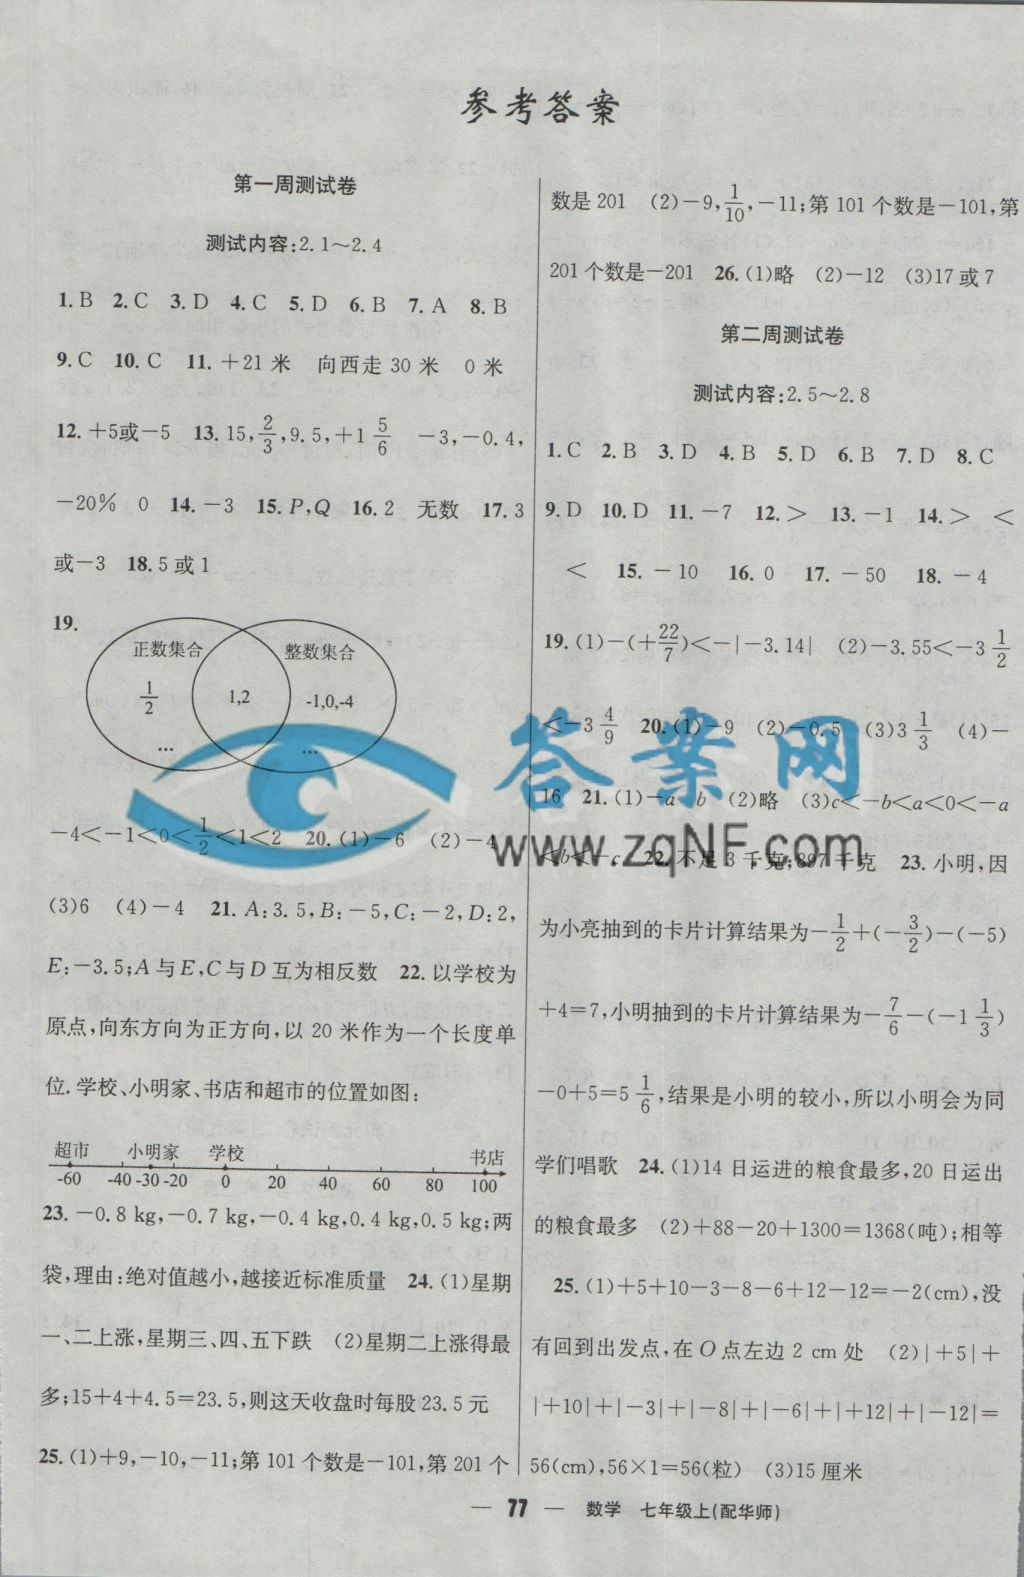 参考答案
第一周测试卷
测试内容:2.1～2.4
1.B 2.C 3.D 4.C 5.D 6.B 7.A 8.B
9.C 10.C 11.+21米 向西走30米 0米
12.+5或-5 13.15,2/3,9.5,+1 5/6 -3,-0.4,
-20% 0 14.-3 15.P,Q 16.2 无数 17.3
或-3 18.5或1
19.
正数集合 整数集合
1/2 1,2 -1,0,-4
… …
-4<-1<0<1/2<1<2 20.(1)-6 (2)-4
(3)6 (4)-4 21.A:3.5,B:-5,C:-2,D:2,
E:-3.5;A与E,C与D互为相反数 22.以学校为
原点,向东方向为正方向,以20米作为一个长度单
位.学校、小明家、书店和超市的位置如图:
超市 小明家 学校 书店
-60 -40 -30 -20 0 20 40 60 80 100
23.-0.8 kg,-0.7 kg,-0.4 kg,0.4 kg,0.5 kg;两
袋,理由:绝对值越小,越接近标准质量 24.(1)星期
一、二上涨,星期三、四、五下跌 (2)星期二上涨得最
多;15+4+4.5=23.5,则这天收盘时每股23.5元
25.(1)+9,-10,-11;第101个数是-101,第201个
数是201 (2)-9,1/10,-11;第101个数是-101,第
201个数是-201 26.(1)略 (2)-12 (3)17或7
第二周测试卷
测试内容:2.5～2.8
1.C 2.B 3.D 4.B 5.D 6.B 7.D 8.C
9.D 10.D 11.-7 12.> 13.-1 14.> <
< 15.-10 16.0 17.-50 18.-4
19.(1)-(+22/7)<-|-3.14| (2)-3.55<-3 1/2
<-3 4/9 20.(1)-9 (2)-0.5 (3)3 1/3 (4)-
16 21.(1)-a b (2)略 (3)c<-b<a<0<-a
<b<-c 22.不足3千克;897千克 23.小明,因
为小亮抽到的卡片计算结果为-1/2+(-3/2)-(-5)
+4=7,小明抽到的卡片计算结果为-7/6-(-1 1/3)
-0+5=5 1/6,结果是小明的较小,所以小明会为同
学们唱歌 24.(1)14日运进的粮食最多,20日运出
的粮食最多 (2)+88-20+1300=1368(吨);相等
25.(1)+5+10-3-8-6+12-12=-2(cm),没
有回到出发点,在O点左边2 cm处 (2)|+5|+
|+10|+|-3|+|-8|+|-6|+|+12|+|-12|=
56(cm),56×1=56(粒) (3)15厘米
— 77 — 数学 七年级上(配华师)
答案网
www.zqNF.com